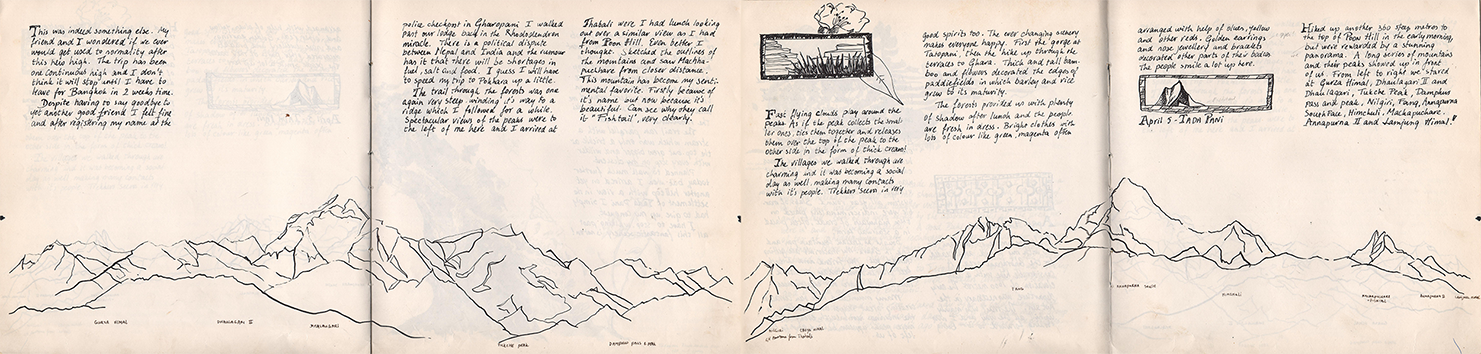 This was indeed something else. My
friend and I wondered if we ever
would get used to normality after
this hero high. The trip has been
one continuous high and I don't
think it will stop until I have to
leave for Bangkok in 2 weeks time.
Despite having to say goodbye to
yet another good friend I felt fine
and after registering my name at the
police checkpost in Ghorepani I walked
past our lodge back in the Rhododendron
miracle. There is a political dispute
between Nepal and India and the rumour
has it that there will be shortages in
fuel, salt and food. I guess I will have
to speed my trip to Pokhara up a little.
The trail through the forests was one
again very steep winding it's way to a
ridge which I followed for a while.
Spectacular views of the peaks were to
the left of me here and I arrived at
Thabali were I had lunch looking
out over a similar view as I had
from Poon Hill. Even better I
thought. Sketched the outlines of
the mountains and saw Macha-
puchhare from closer distance.
This mountain has become my senti-
mental favorite. Firstly because of
it's name but now because it's
beautiful. Can see why they call
it "Fishtail", very clearly.
GURJA HIMAL
DHAULAGARI II
DHAULAGARI
TUKCHE PEAK
DAMPHUS PASS & PEAK
Fast flying clouds play around the
peaks. As if the peak collects the small-
ler ones, ties them together and releases
them over the top of the peak to the
other side in the form of thick cream!
The villages we walked through are
charming and it was becoming a social
day as well, making many contacts
with it's people. Trekkers seem in very
good spirits too. The ever changing scenery
makes everyone happy. First the gorge at
Tatopani, then the hike up through the
terraces to Ghara. Thick and tall bam-
boo and flowers decorated the edges of
paddiefields in which barley and rice
grew to its maturity.
The forests provided us with plenty
of shadow after lunch and the people
are fresh in dress. Bright clothes with
lots of colour like green, magenta often
arranged with help of blues, yellow
and other reds. Golden earrings
and nose jewellery and bracelets
decorated other parts of their bodies
The people smile a lot up here.
April 5 - TADA PANI
Hiked up another 360 steep metres to
the top of Poon Hill in the early morning,
but were rewarded by a stunning
panorama. A long series of mountains
and their peaks showed up in front
of us. From left to right we stared
at Gurja Himal, Dhaulagari II and
Dhaulagari, Tukche Peak, Damphus
pass and peak, Nilgiri, Fang, Annapurna
South Face, Himchuli, Machapuchare,
Annapurna II and Lamjung Himal!!
NILGIRI
FANG
ANNAPURNA SOUTH
HIMCHULI
MACHAPUCHARE
ANNAPURNA II
LAMJUNG HIMAL